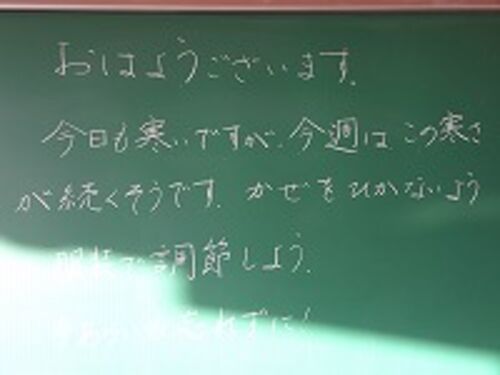 おはようございます。
今日も寒いですが、今週はこの寒さ
が続くそうです。かぜをひかないよう
服装で調節しよう。
忘れずに